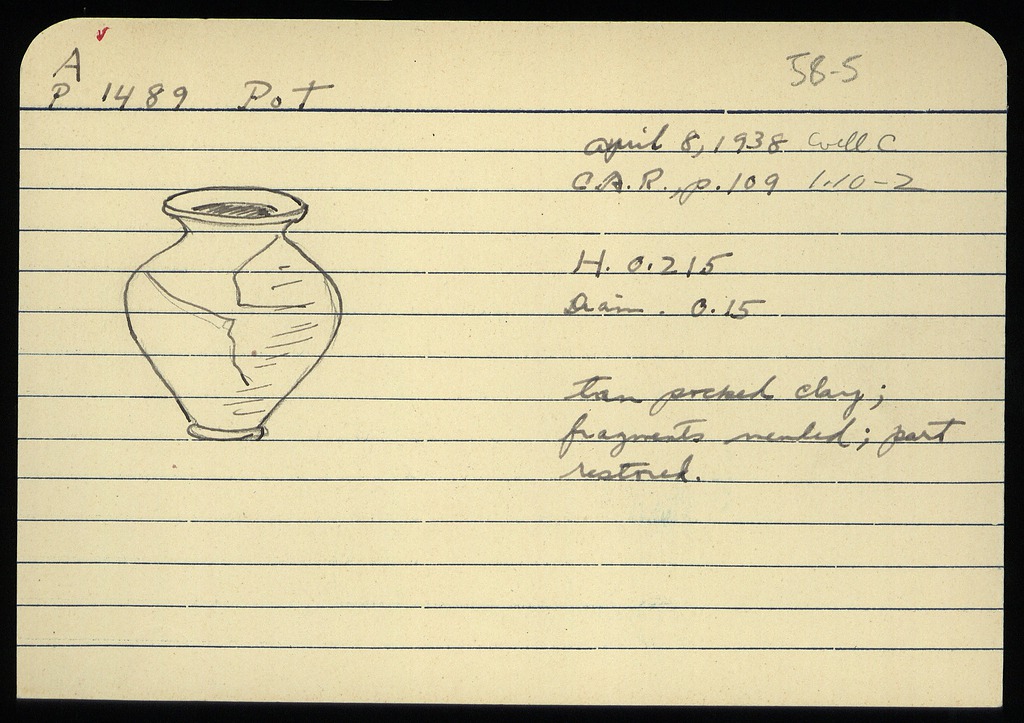 A
58-5
P 1489 Pot
april 8, 1938 Well C
C.A.R., p. 109 1.10-2
H. 0.215
Diam. 0.15
tan pocked clay;
fragments mended; part
restored.